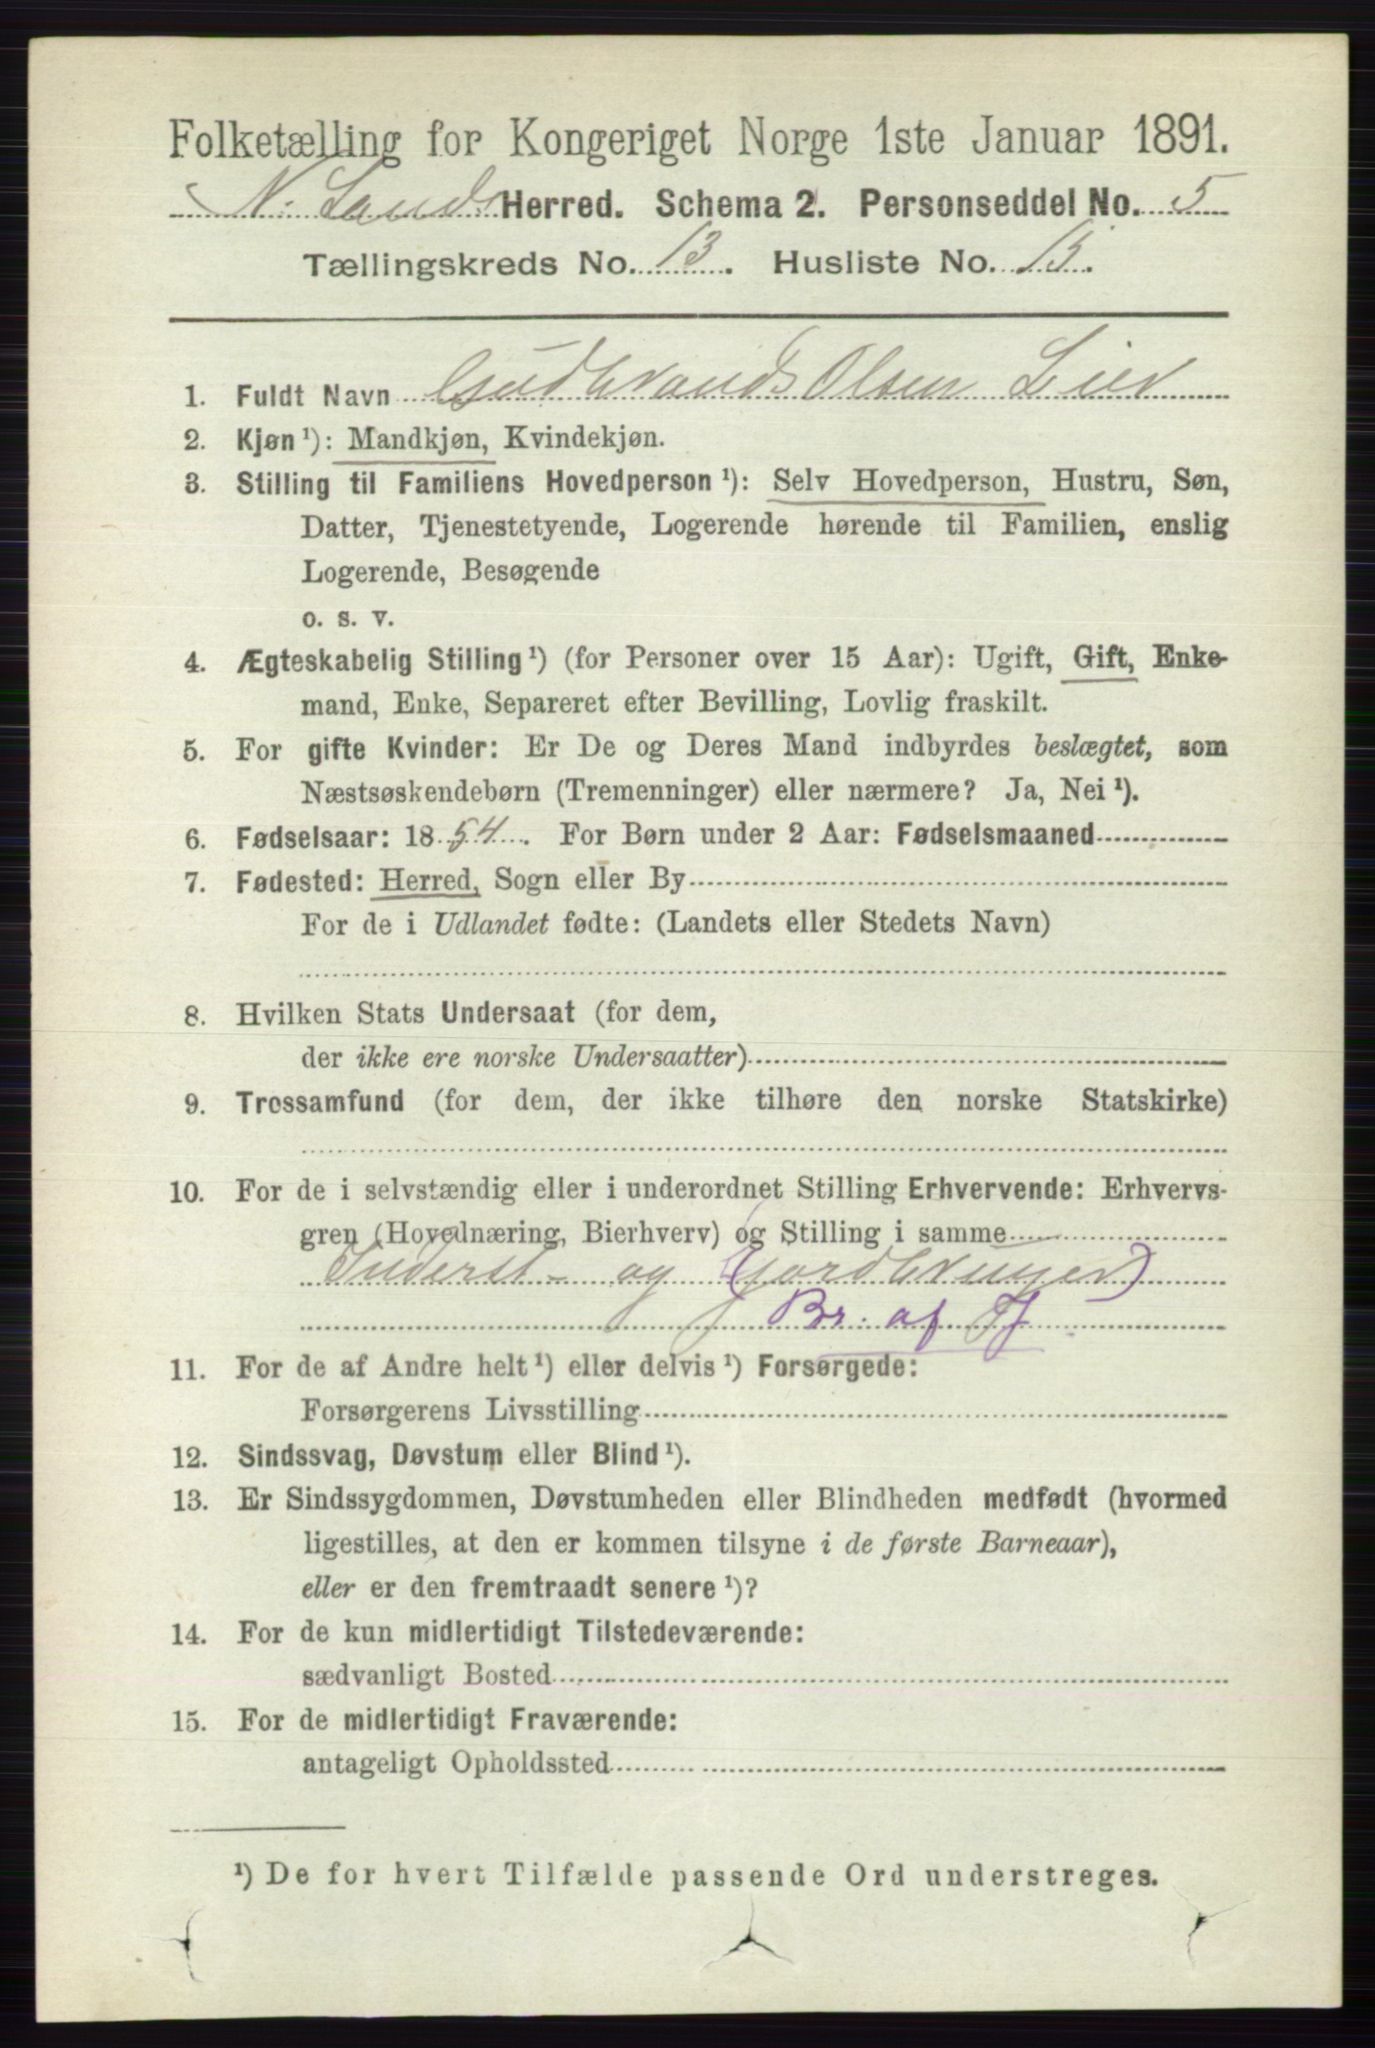 Folketælling for Kongeriget Norge 1ste Januar 1891.
N. Lands Herred. Schema 2. Personseddel No. 5
Tællingskreds No. 13. Husliste No. 15.
1. Fuldt Navn Gudbrand Olsen Lier
2. Kjøn ¹): Mandkjøn, Kvindekjøn.
3. Stilling til Familiens Hovedperson ¹): Selv Hovedperson, Hustru, Søn,
Datter, Tjenestetyende, Logerende hørende til Familien, enslig
Logerende, Besøgende
o. s. v.
4. Ægteskabelig Stilling ¹) (for Personer over 15 Aar): Ugift, Gift, Enke-
mand, Enke, Separeret efter Bevilling, Lovlig fraskilt.
5. For gifte Kvinder: Er De og Deres Mand indbyrdes beslægtet, som
Næstsøskendebørn (Tremenninger) eller nærmere? Ja, Nei ¹).
6. Fødselsaar: 1854. For Børn under 2 Aar: Fødselsmaaned
7. Fødested: Herred, Sogn eller By
For de i Udlandet fødte: (Landets eller Stedets Navn)
8. Hvilken Stats Undersaat (for dem,
der ikke ere norske Undersaatter)
9. Trossamfund (for dem, der ikke tilhøre den norske Statskirke)
10. For de i selvstændig eller i underordnet Stilling Erhvervende: Erhvervs-
gren (Hovednæring, Bierhverv) og Stilling i samme
Inderst- og (Jordbruger)
Br. af J
11. For de af Andre helt ¹) eller delvis ¹) Forsørgede:
Forsørgerens Livsstilling
12. Sindssvag, Døvstum eller Blind ¹).
13. Er Sindssygdommen, Døvstumheden eller Blindheden medfødt (hvormed
ligestilles, at den er kommen tilsyne i de første Barneaar),
eller er den fremtraadt senere ¹)?
14. For de kun midlertidigt Tilstedeværende:
sædvanligt Bosted
15. For de midlertidigt Fraværende:
antageligt Opholdssted
¹) De for hvert Tilfælde passende Ord understreges.